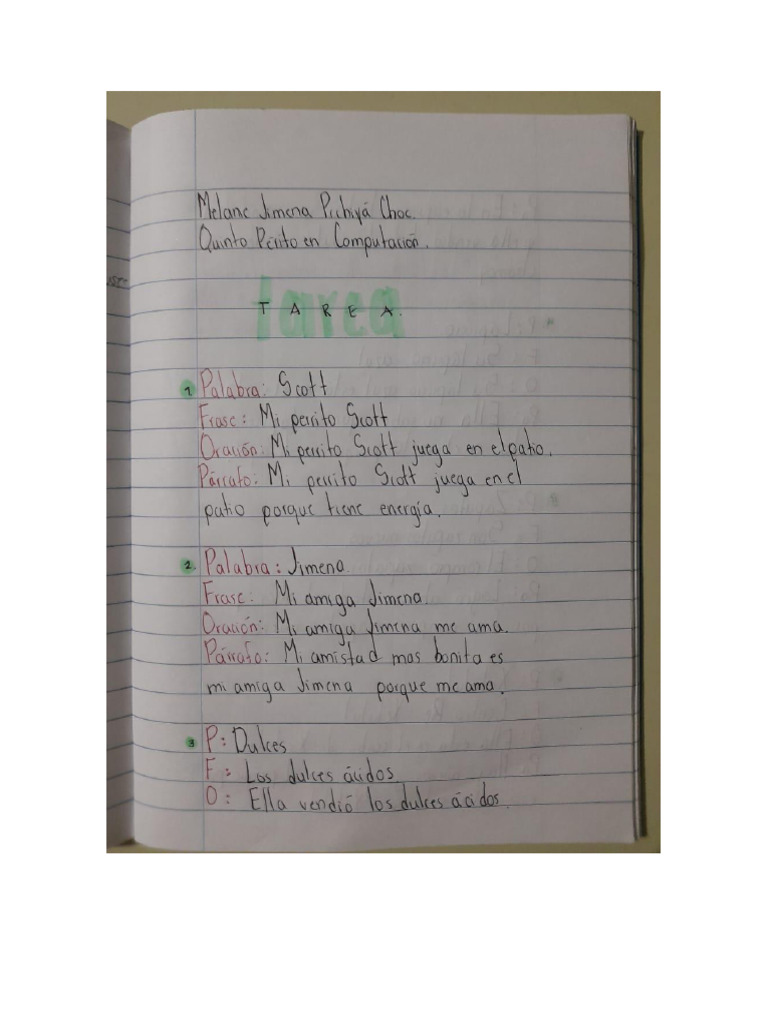 Melane Jimena Pichiyá Choc.
Quinto Périto en Computación.
Tarea
T A R E A.
1 Palabra: Scott
Frase: Mi perrito Scott
Oración: Mi perrito Scott juega en el patio.
Párrafo: Mi perrito Scott juega en el
patio porque tiene energía.
2. Palabra: Jimena.
Frase: Mi amiga Jimena
Oración: Mi amiga Jimena me ama.
Párrafo: Mi amistad mas bonita es
mi amiga Jimena porque me ama.
3 P: Dulces
F: Los dulces ácidos.
O: Ella vendió los dulces ácidos.